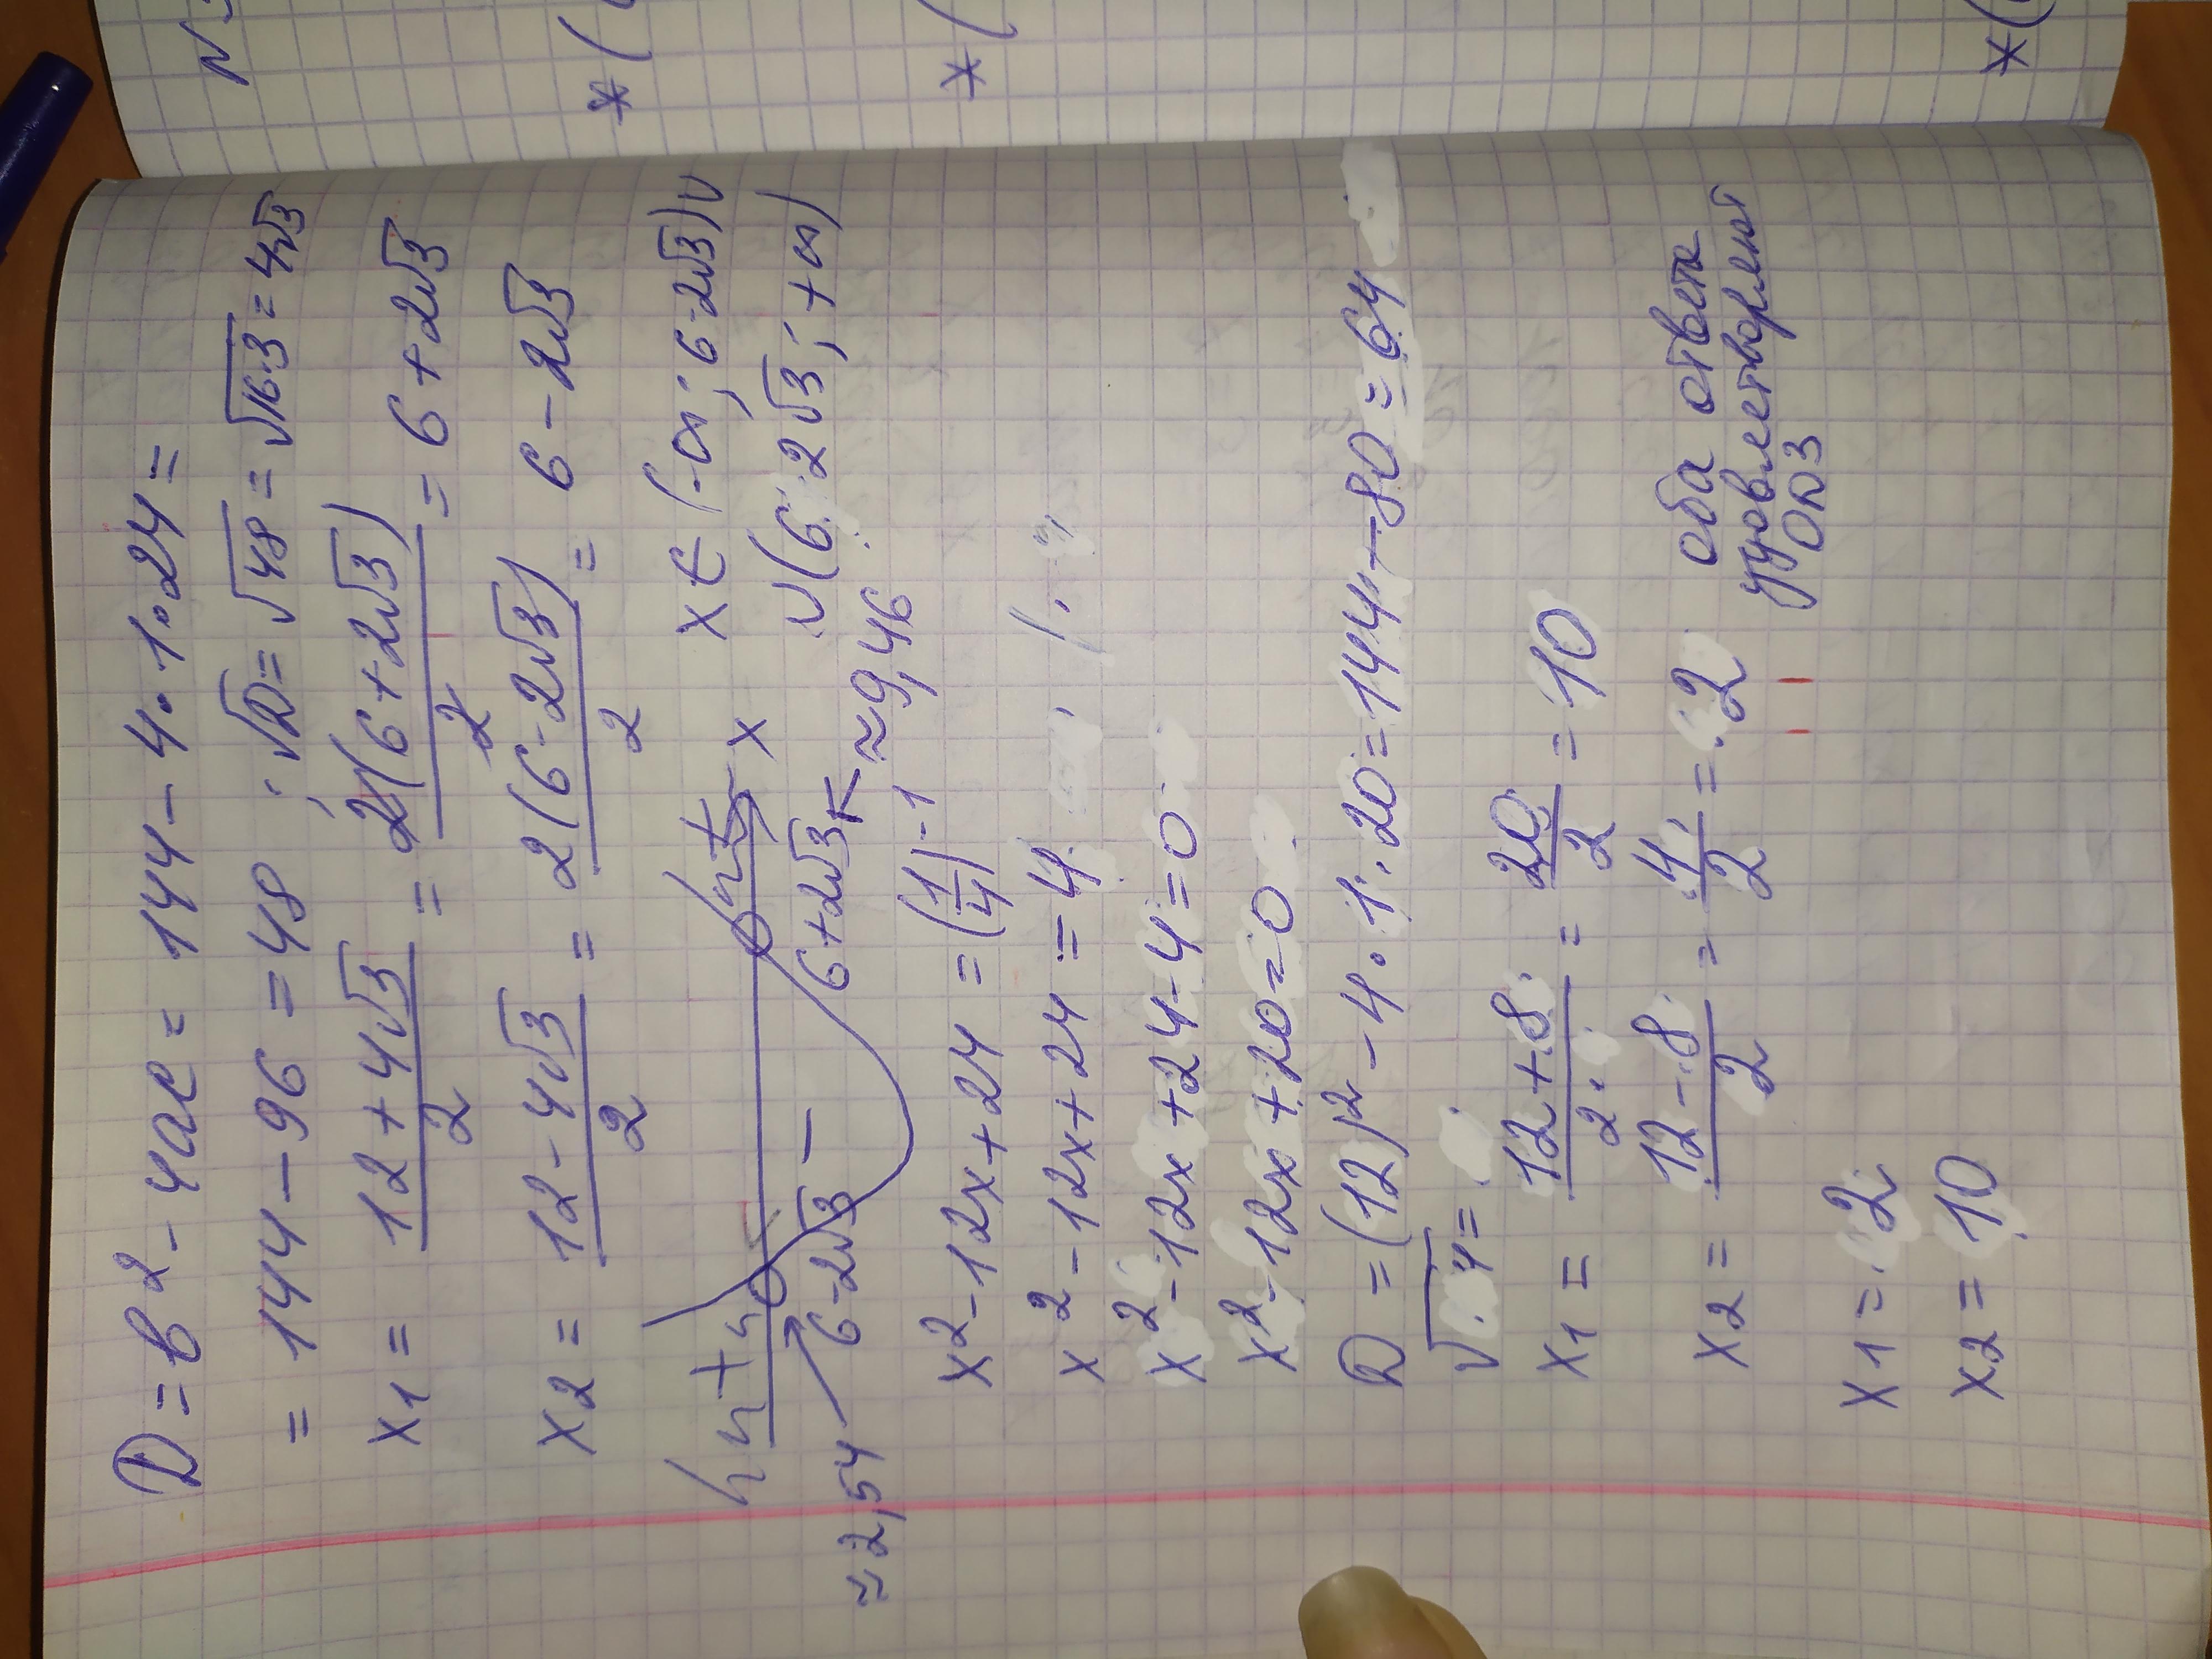 D = b² - 4ac = 144 - 4·1·24 =
= 144 - 96 = 48 ; √D = √48 = √16·3 = 4√3
x1 = (12 + 4√3)/2 = 2(6+2√3)/2 = 6 + 2√3
x2 = (12 - 4√3)/2 = 2(6-2√3)/2 = 6 - 2√3
x ∈ (-∞; 6-2√3) ∪
+ - + x
6-2√3 6+2√3
∪ (6 2√3; +∞)
≈2,54 ≈9,46
x² - 12x + 24 = (1/4)^-1
x² - 12x + 24 = 4
x² - 12x + 24 - 4 = 0
x² - 12x + 20 = 0
D = (12)² - 4·1·20 = 144 - 80 = 64
√ 4 =
x1 = (12 + 8)/2 = 20/2 = 10
x2 = (12 - 8)/2 = 4/2 = 2
оба ответа
удовлетворяют
ОДЗ
x1 = 2
x2 = 10
N
*(
*(
*(